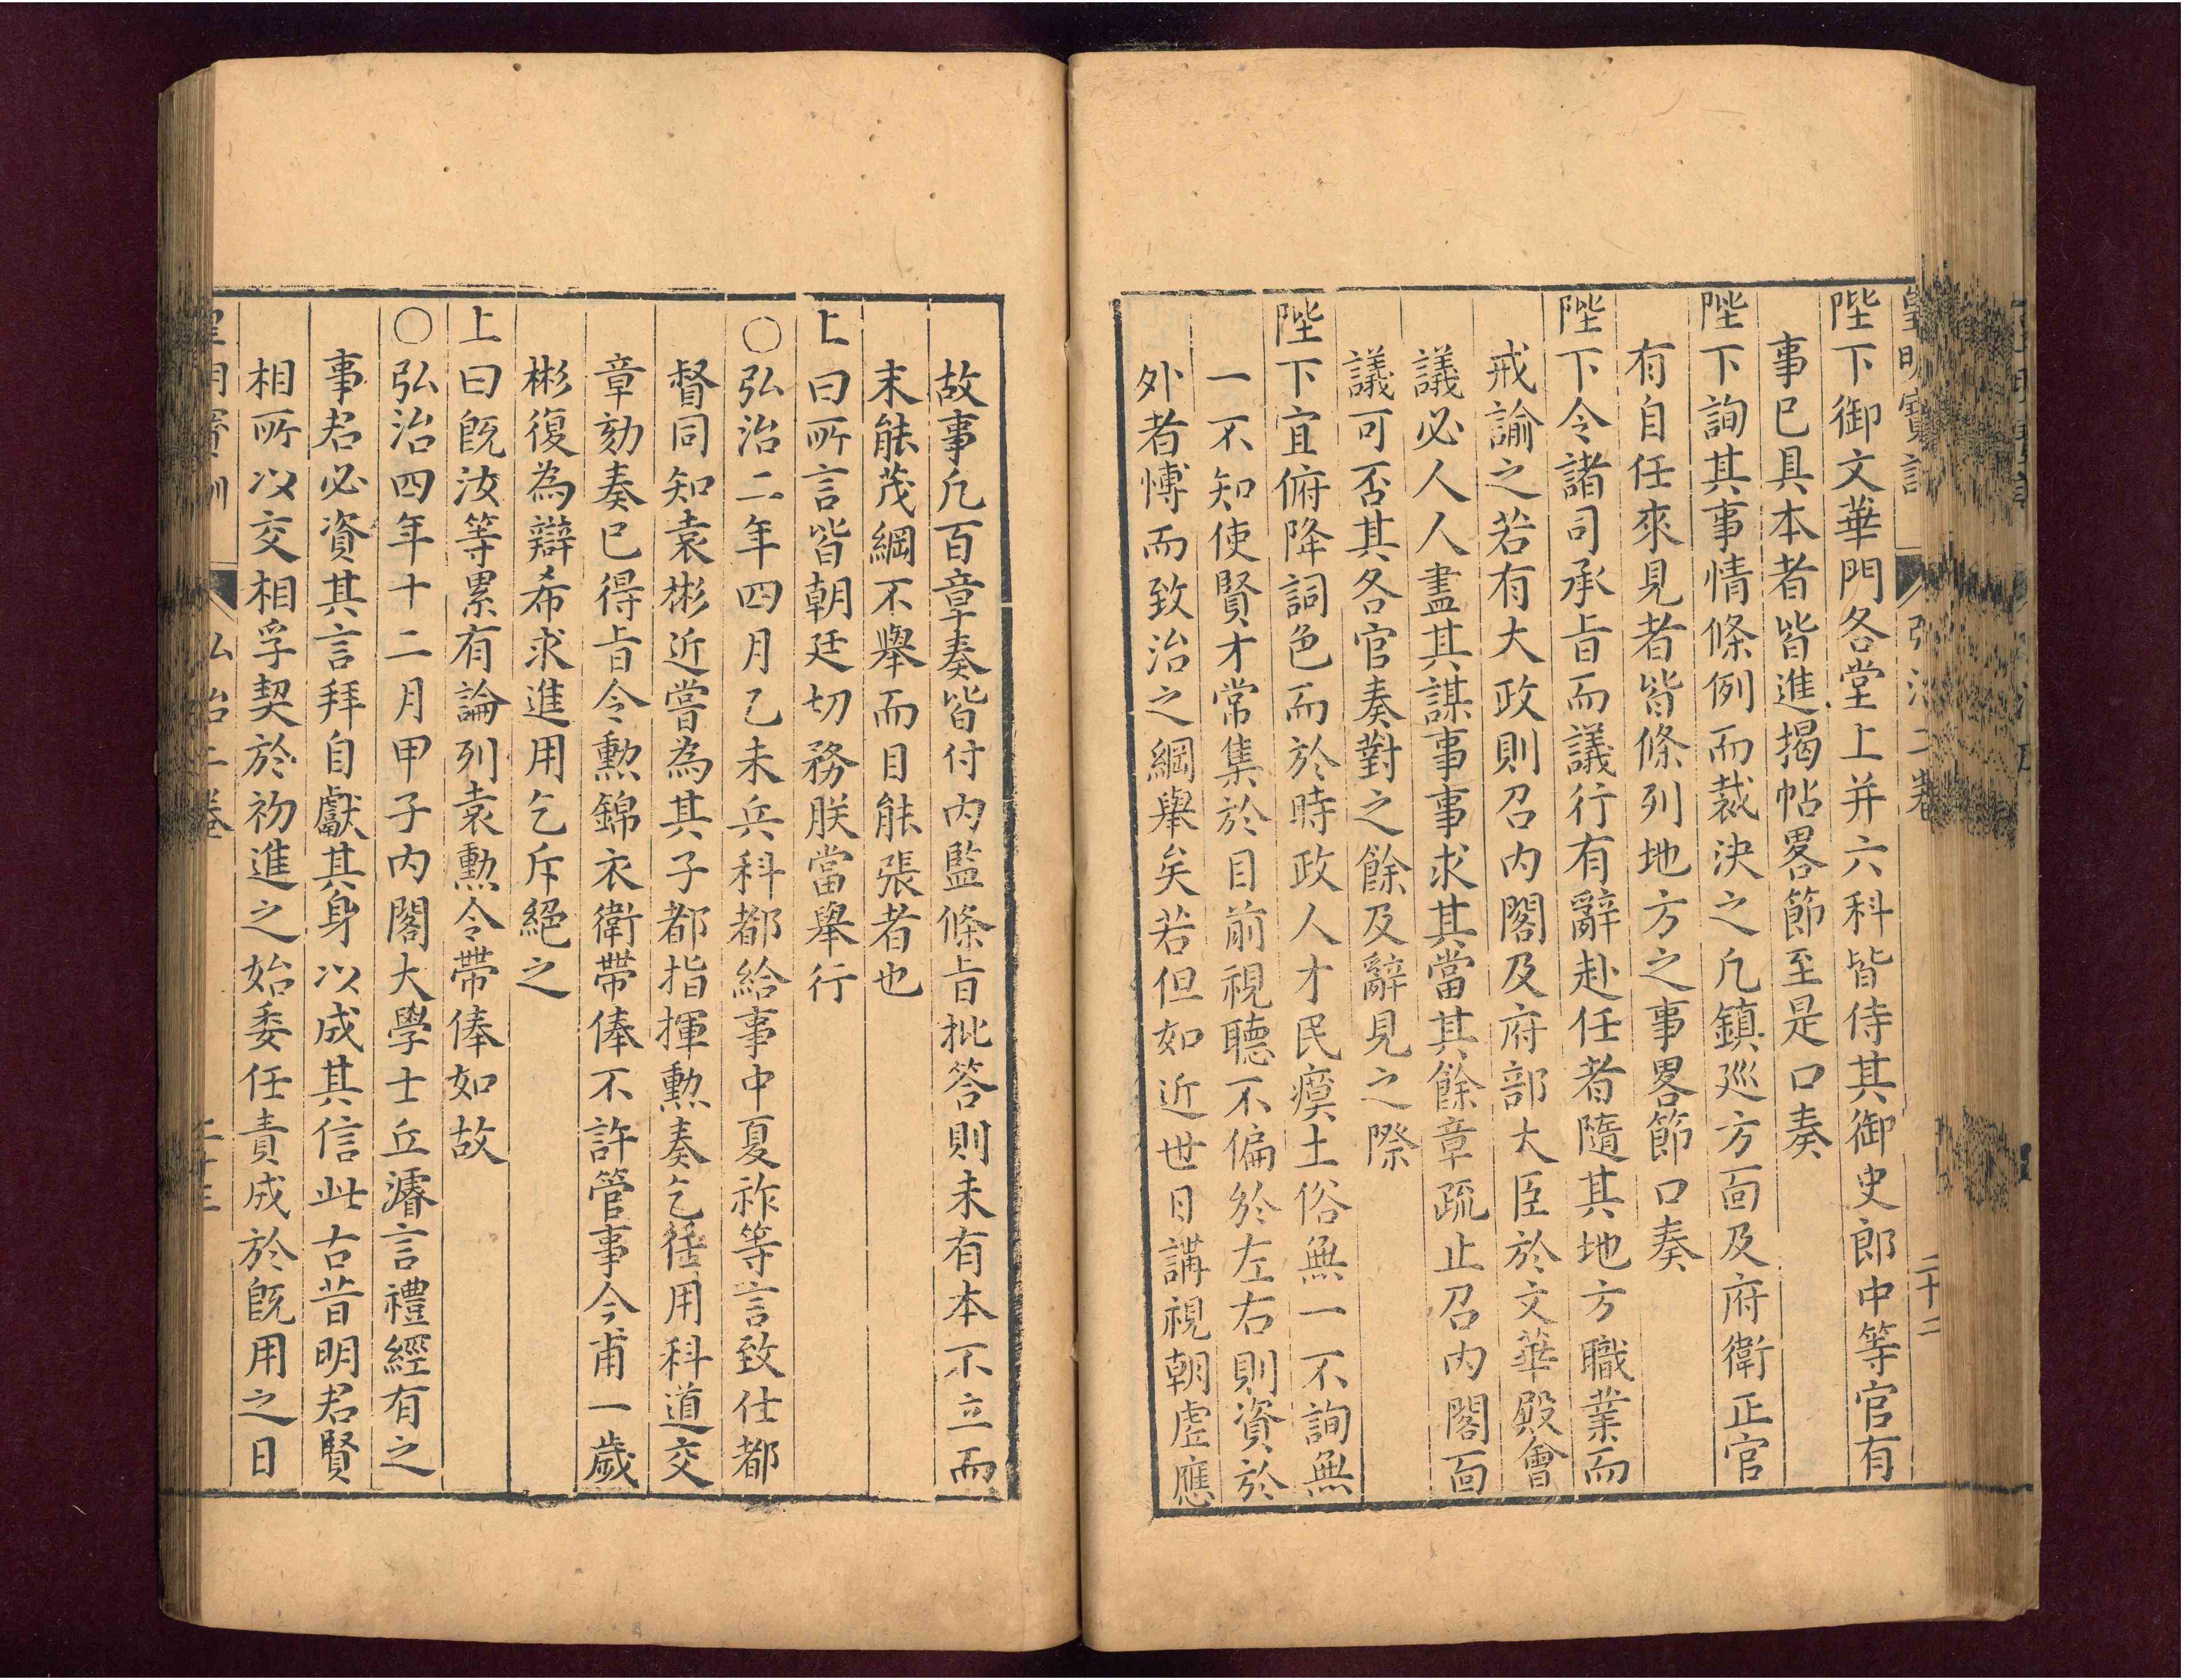 皇明寶訓 弘治二卷 二十二
陛下御文華門各堂上并六科皆侍其御史郎中等官有
事已具本者皆進揭帖畧節至是口奏
陛下詢其事情條例而裁決之凢鎮廵方面及府衛正官
有自任來見者皆條列地方之事畧節口奏
陛下令諸司承旨而議行有辭赴任者隨其地方職業而
戒諭之若有大政則召内閣及府部大臣於文華殿會
議必人人盡其謀事事求其當其餘章疏止召内閣面
議可否其各官奏對之餘及辭見之際
陛下宜俯降詞色而於時政人才民瘼土俗無一不詢無
一不知使賢才常集於目前視聽不偏於左右則資於
外者愽而致治之綱舉矣若但如近世日講視朝虛應
故事凢百章奏皆付内監條旨批答則未有本不立而
末能茂綱不舉而目能張者也
上曰所言皆朝廷切務朕當舉行
○弘治二年四月乙未兵科都給事中夏祚等言致仕都
督同知袁彬近嘗為其子都指揮勲奏乞徃用科道交
章劾奏已得旨令勲錦衣衛帶俸不許管事今甫一歲
彬復為辯希求進用乞斥絕之
上曰旣汝等累有論列袁勲令帶俸如故
○弘治四年十二月甲子内閣大學士丘濬言禮經有之
事君必資其言拜自獻其身以成其信此古昔明君賢
相所以交相孚契於初進之始委任責成於旣用之日
皇明寶訓 弘治二卷 二十三